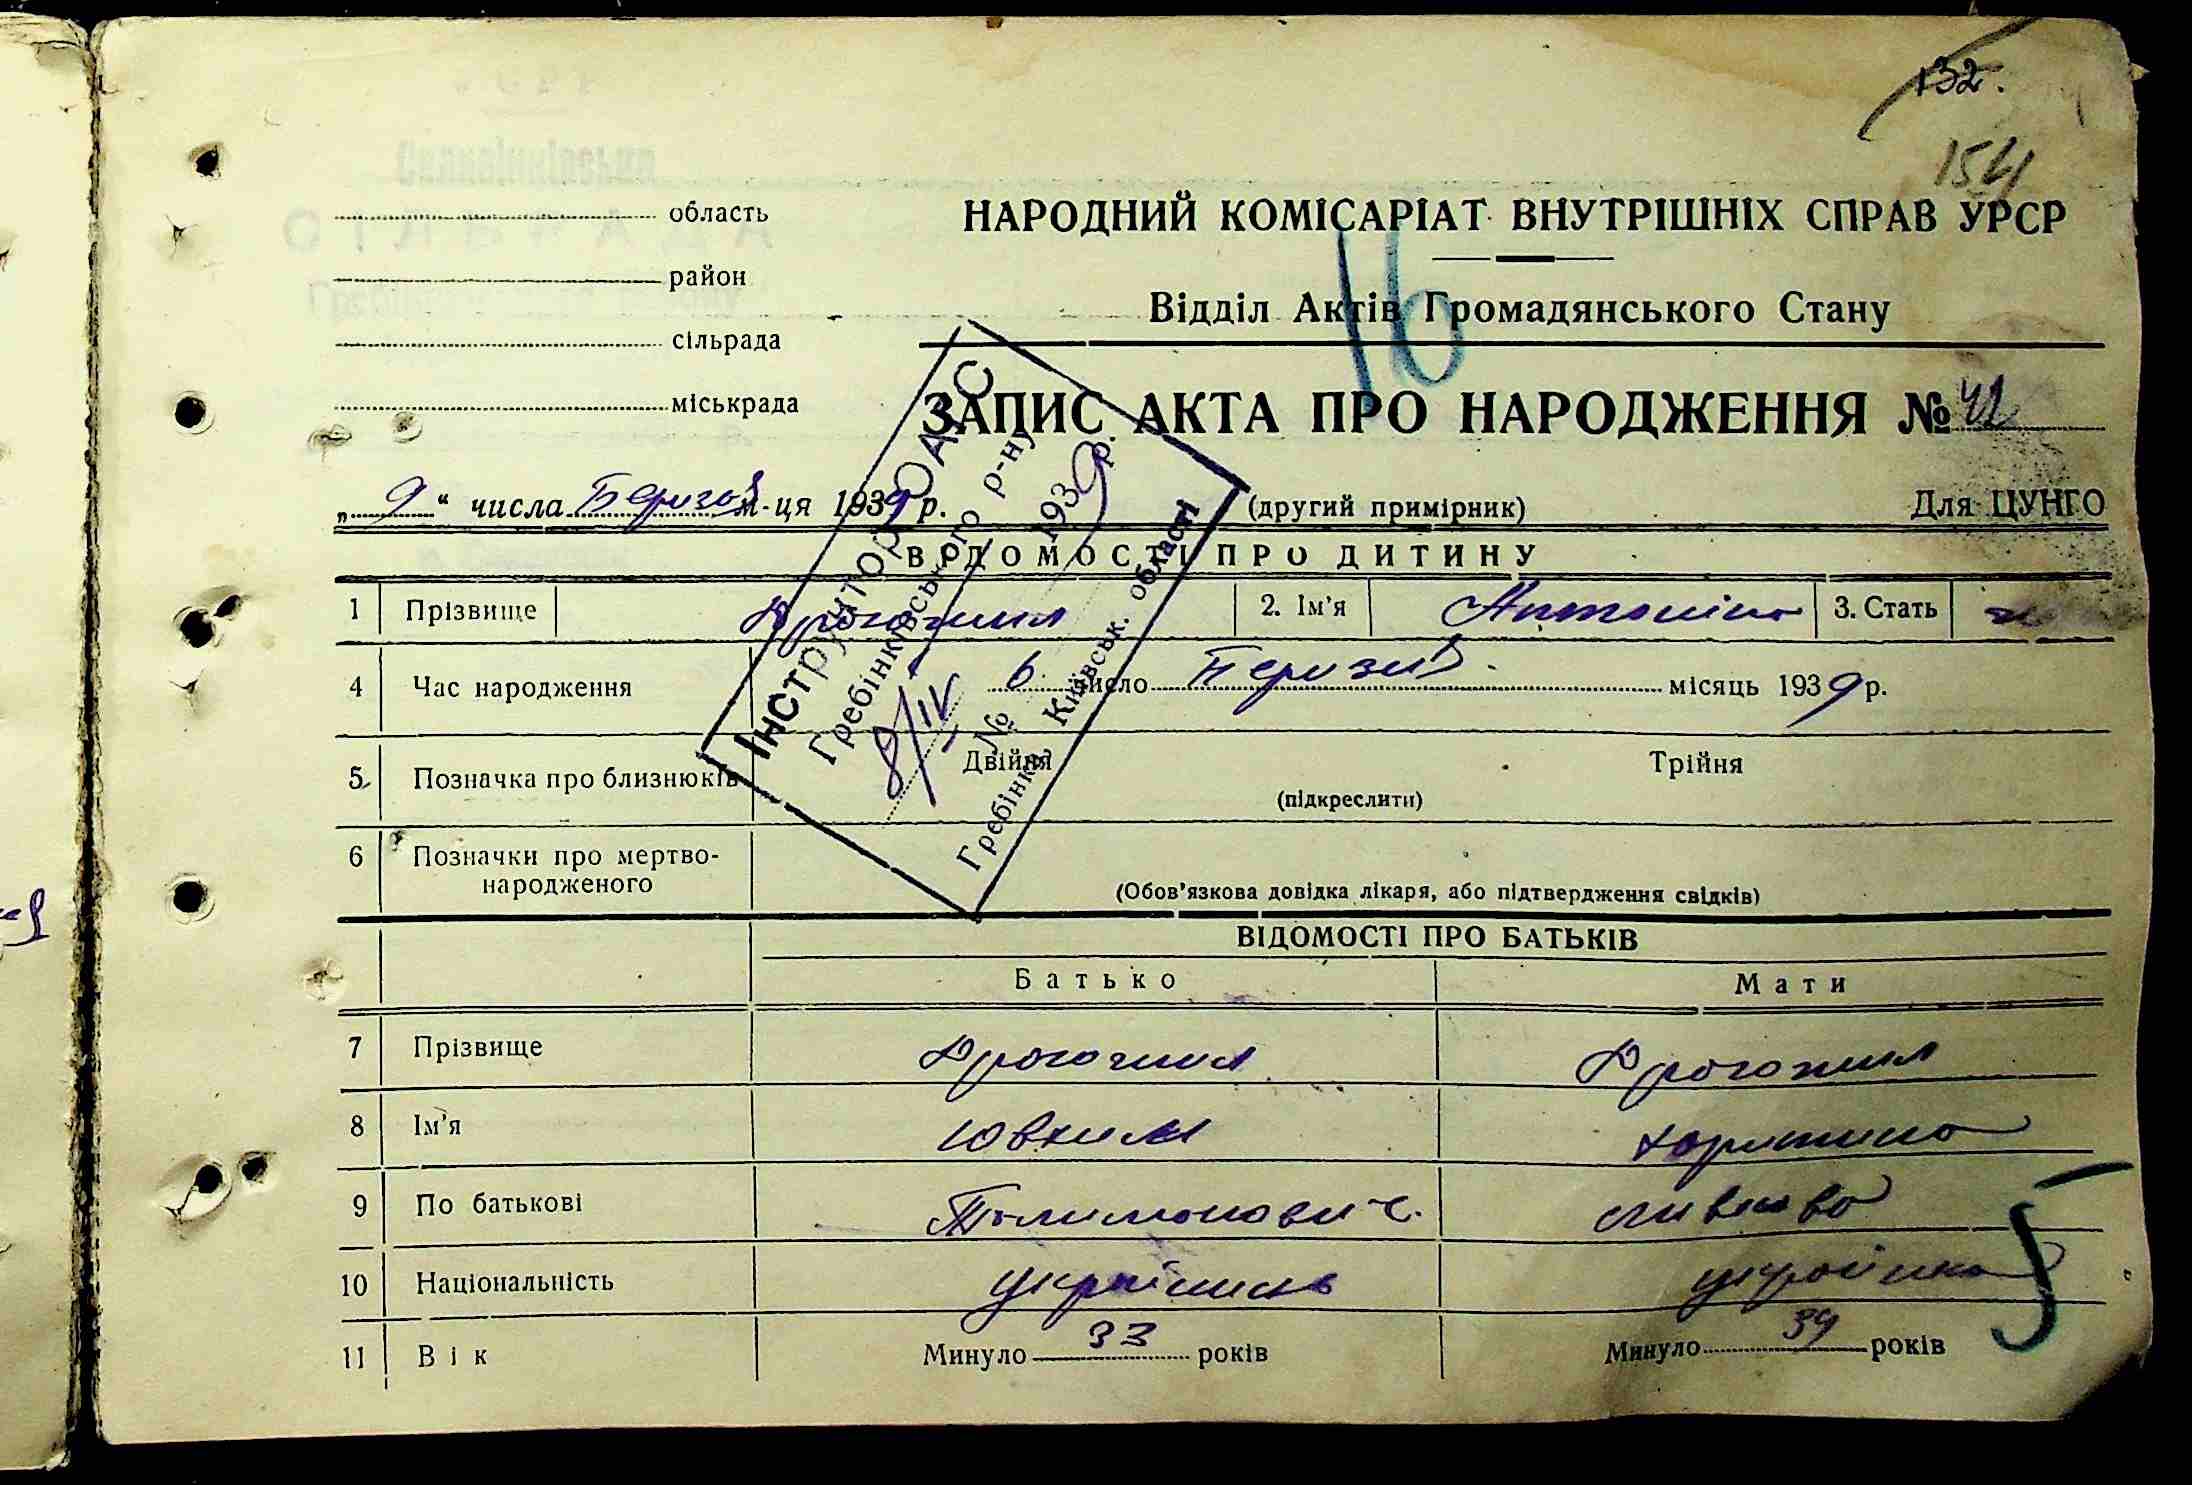 132.
154
область
район
сільрада
міськрада
НАРОДНИЙ КОМІСАРІАТ ВНУТРІШНІХ СПРАВ УРСР
Відділ Актів Громадянського Стану
16
ЗАПИС АКТА ПРО НАРОДЖЕННЯ № 42
„ 9 “ числа Березня м-ця 1939 р.
(другий примірник)
Для ЦУНГО
ІНСТРУКТОР ОАГС
Гребінківського р-ну
8/IV 1939 р.
№
Гребінка, Київськ. області
ВІДОМОСТІ ПРО ДИТИНУ
1 Прізвище Дрогожил 2. Ім’я Антоніна 3. Стать
4 Час народження 6 число Березня місяць 1939 р.
5 Позначка про близнюків Двійня Трійня
(підкреслити)
6 Позначки про мертво-
народженого
(Обов’язкова довідка лікаря, або підтвердження свідків)
ВІДОМОСТІ ПРО БАТЬКІВ
Батько Мати
7 Прізвище Дрогожил Дрогожил
8 Ім’яЮвхим
9 По батькові
10 Національність українець українка
11 Вік Минуло 33 років Минуло 34 років
5